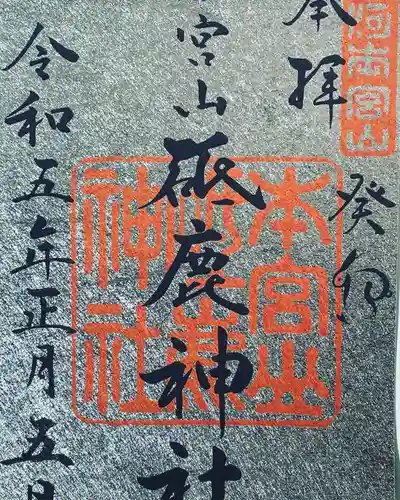 奉拝
癸卯
本宮山
宮山砥鹿神社
令和五年正月五日
本宮山
砥鹿
神社